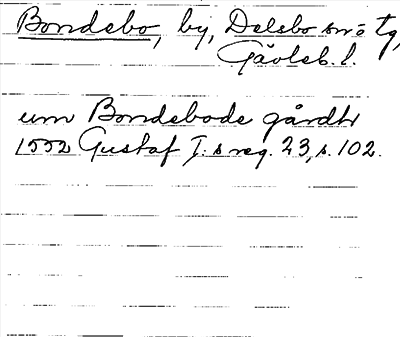 Bondebo, by, Delsbo sn o tg,
Gävleb. l.
um Bondebode gårdh
1552 Gustaf I:s reg. 23, s. 102.